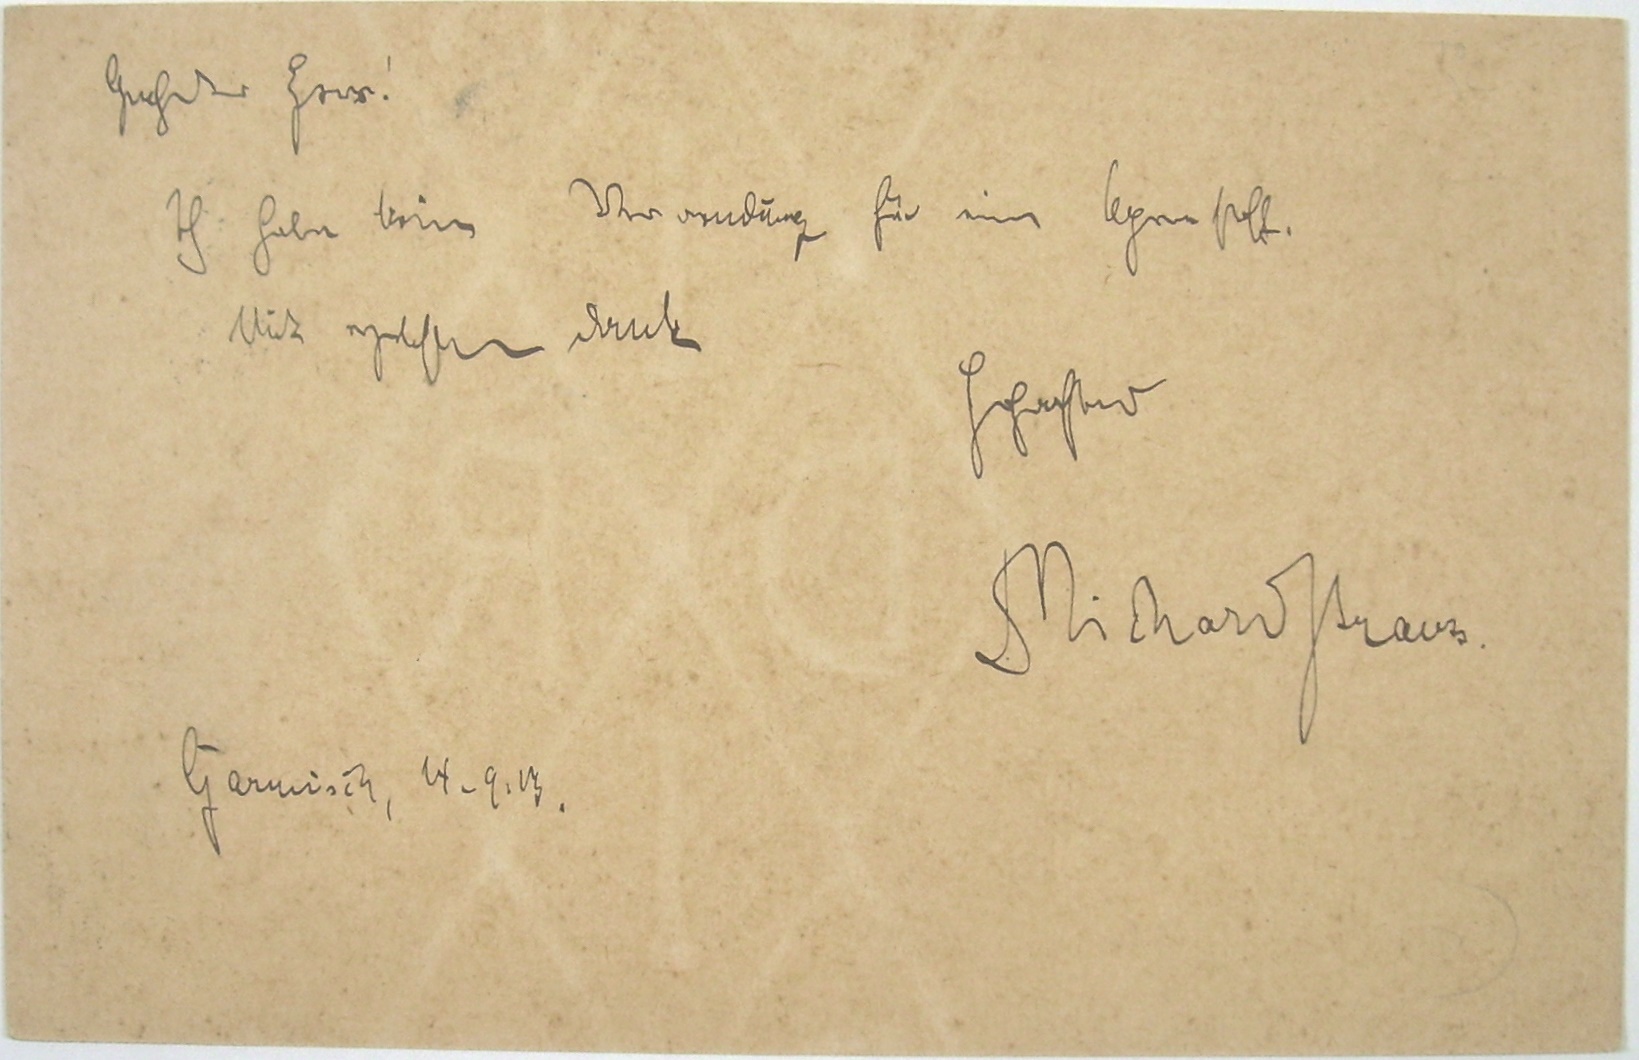 Geehrter Herr!
Ich habe keine Verwendung für einen Opernstoff.
Mit verbindlichem Dank
Hochachtend
Richard Strauss.
Garmisch, 14.9.13.